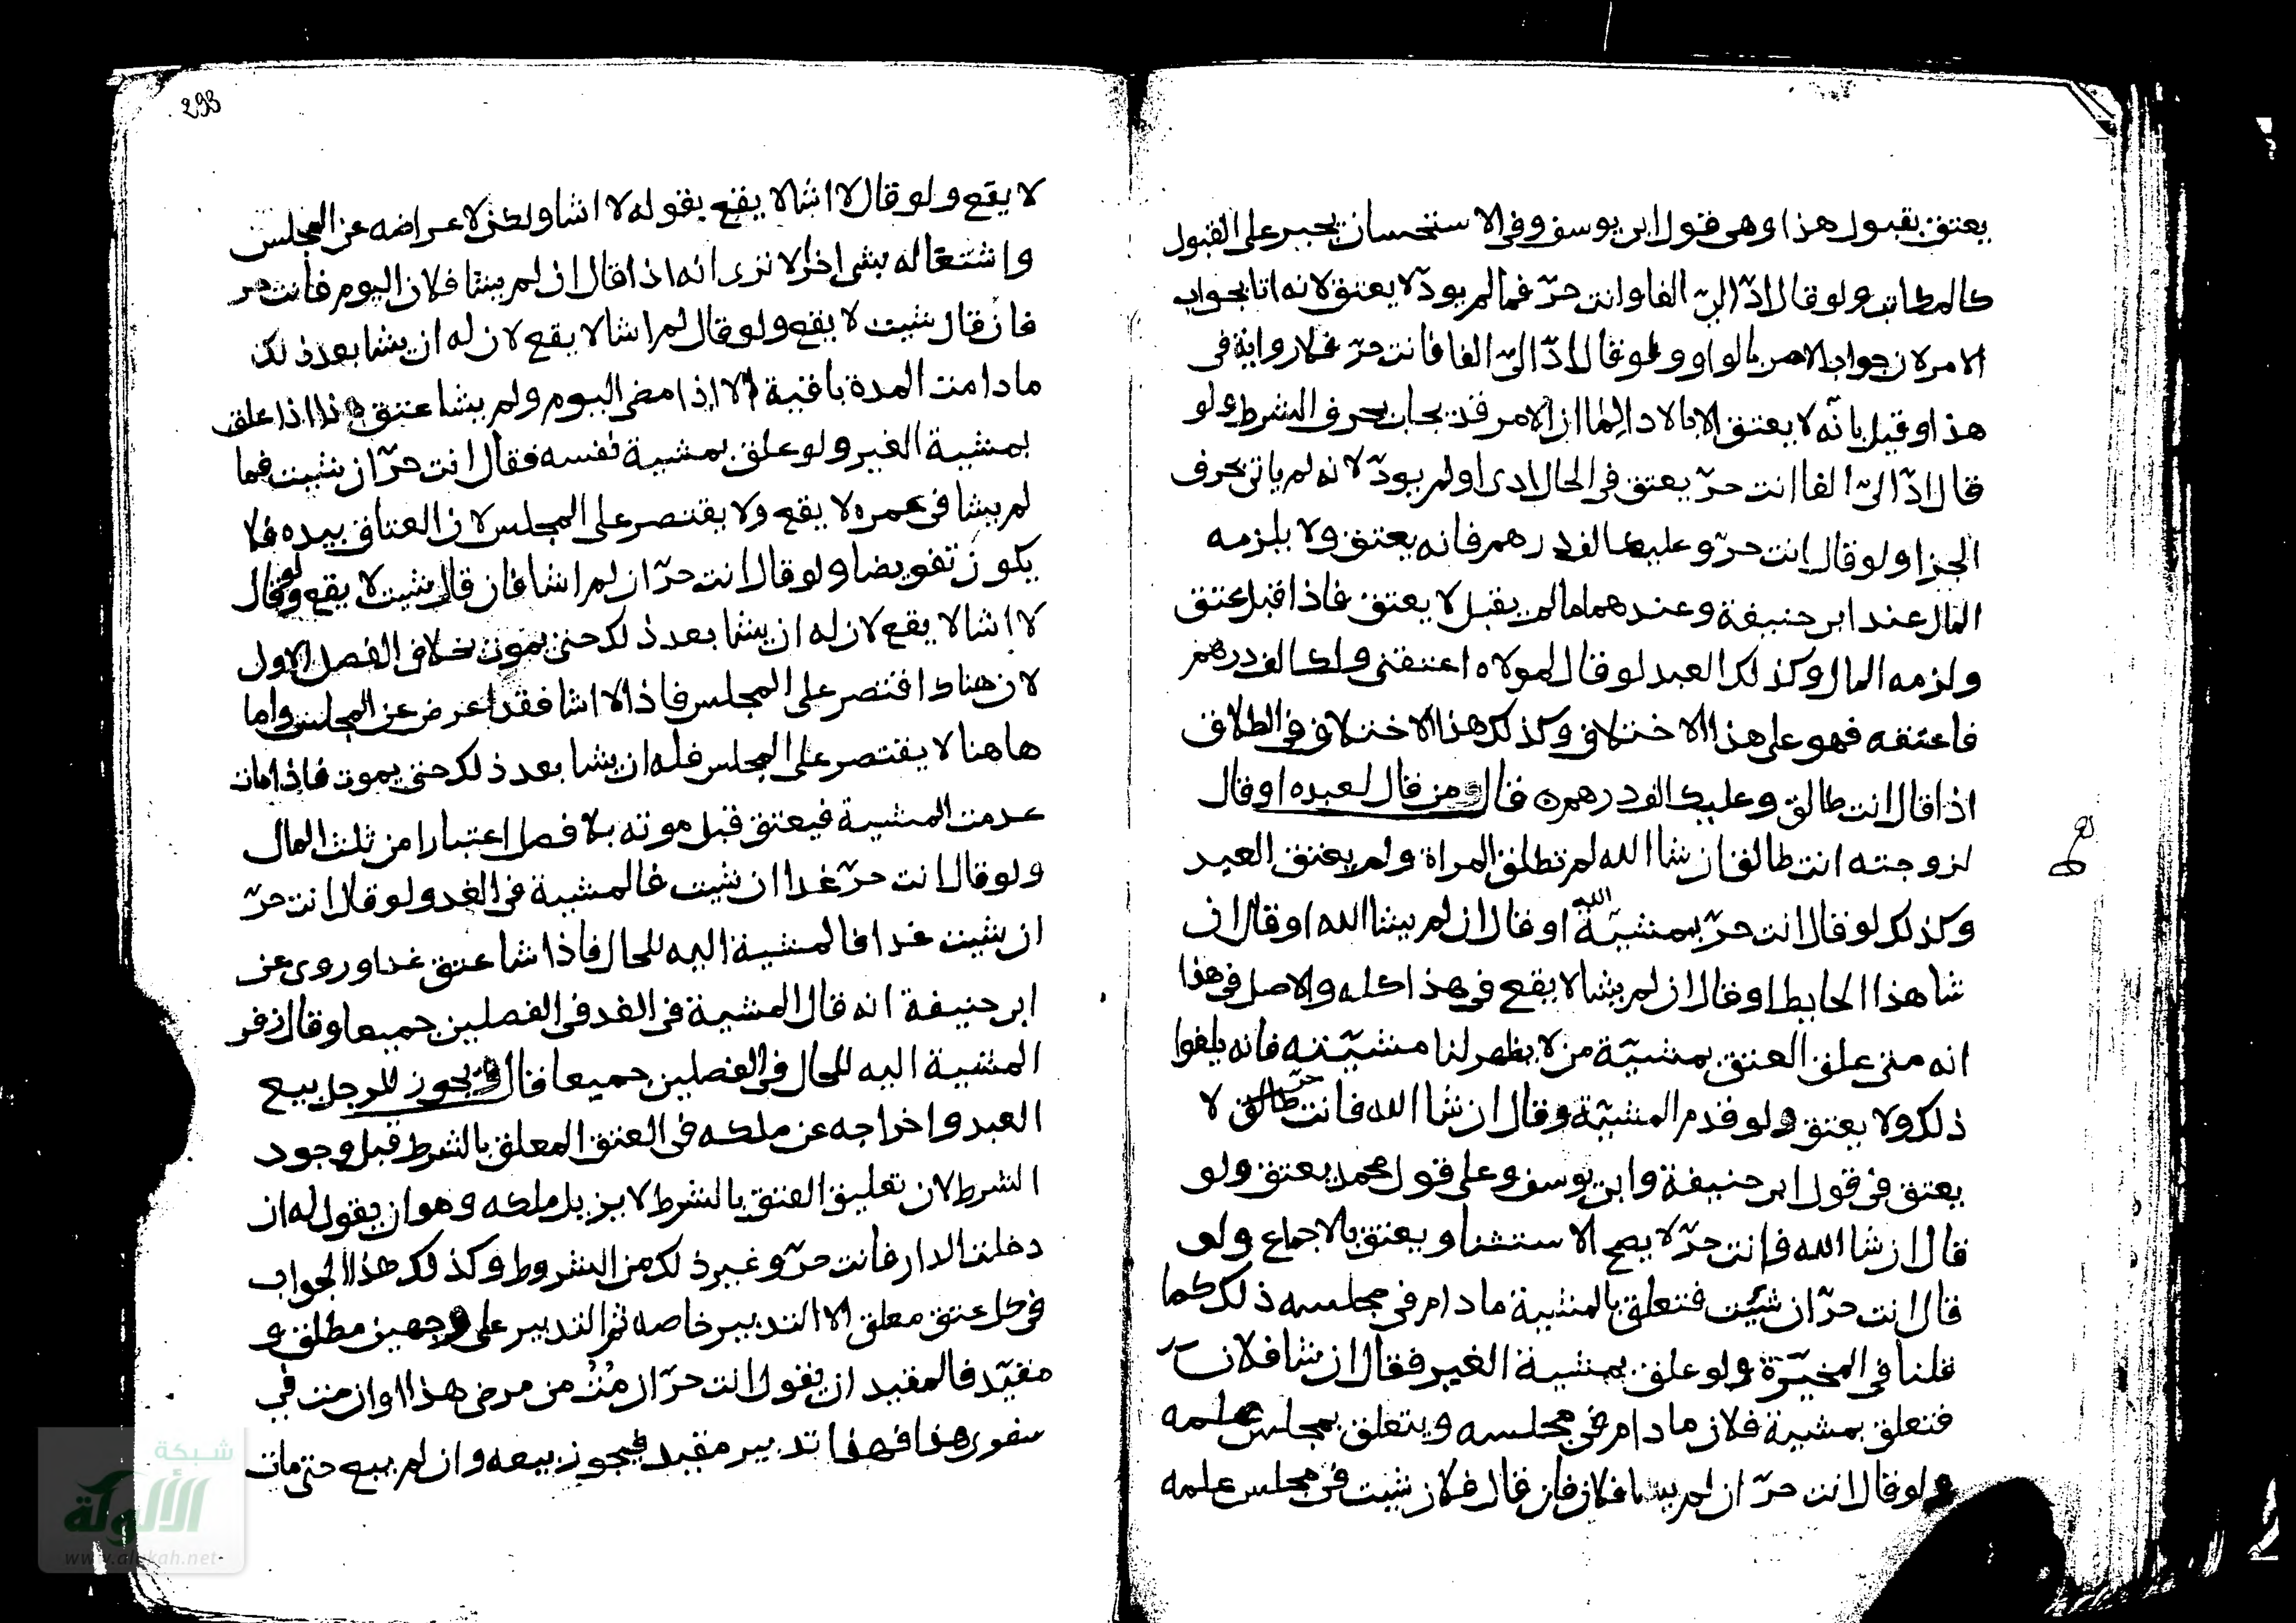 يعتق بقبول هذا وهي قول ابي يوسف وفي الاستحسان يجبر على القبول
كالمكاتب ولو قال ادّ اليّ الفا وانت حرّ فما لم يودّ لا يعتق لانه اتا بجواب
الامر لان جواب الامر بالواو ولو قال ادّ اليّ الفا فانت حرّ فلا رواية في
هذا وقيل بانّه لا يعتق الا بالادا لما ان الامر قد يجاب بحرف الشرط ولو
قال ادّ اليّ الفا انت حرّ يعتق في الحال ادى او لم يودّ لانه لم ياتي بحرف
الجزا ولو قال انت حرّ وعليك الف درهم فانه يعتق ولا يلزمه
المال عند ابي حنيفة وعندهما ما لم يقبل لا يعتق فاذا قبل عتق
ولزمه المال وكذلك العبد لو قال لمولاه اعتقني ولك الف درهم
فاعتقه فهو على هذا الاختلاف وكذلك هذا الاختلاف في الطلاق
اذا قال انت طالق وعليك الف درهم قال ومن قال لعبده او قال
لزوجته انت طالق ان شا الله لم تطلق المراة ولم يعتق العبد
وكذلك لو قال انت حرّ بمشيّة الله او قال ان لم يشا الله او قال ان
شا هذا الحايط او قال ان لم يشا لا يقع في هذا كله والاصل في هذا
انه متى علق العتق بمشيّة من لا يظهر لنا مشيّته فانه يلغوا
ذلك ولا يعتق ولو قدم المشيّة وقال ان شا الله فانت طالق حرّ لا
يعتق في قول ابي حنيفة وابي يوسف وعلى قول محمد يعتق ولو
قال ان شا الله وانت حرّ لا يصح الاستثنا ويعتق بالاجماع ولو
قال انت حرّ ان شئت فتعلق بالمشية ما دام في مجلسه ذلك كما
قلنا في المخيّرة ولو علق بمشية الغير فقال ان شا فلان
فتعلق بمشية فلان ما دام في مجلسه ويتعلق بمجلس علمه
ولو قال انت حرّ ان لم يشا فلان فان قال فلان شيت في مجلس علمه
293
لا يقع ولو قال لا اشا لا يقع بقوله لا اشا ولكن لاعراضه عن المجلس
واشتغاله بشي اخر الا نرى انه اذا قال ان لم يشا فلان اليوم فانت حر
فان قال شيت لا يقع ولو قال لم اشا لا يقع لان له ان يشا بعد ذلك
ما دامت المدة باقية الا اذا مضى اليوم ولم يشا عتق هذا اذا علق
بمشية الغير ولو علق بمشية نفسه فقال انت حرّ ان شيت فما
لم يشا في عمره لا يقع ولا يقتصر على المجلس لان العتاق بيده فلا
يكون تفويضا ولو قال انت حرّ ان لم اشا فان قال شيت لا يقع ولو قال
لا اشا لا يقع لان له ان يشا بعد ذلك حتى يموت بخلاف الفصل الاول
لان هناك اقتصر على المجلس فاذا لا اشا فقد اعرض عن المجلس واما
هاهنا لا يقتصر على المجلس فله ان يشا بعد ذلك حتى يموت فاذا مات
عدمت المشية فيعتق قبل موته بلا فصل اعتبارا من ثلث المال
ولو قال انت حرّ غدا ان شيت فالمشية في الغد ولو قال انت حرّ
ان شيت غدا فالمشية اليه للحال فاذا شا عتق غدا وروى عن
ابي حنيفة انه قال المشية في الغد في الفصلين جميعا وقال زفر
المشية اليه للحال في الفصلين جميعا قال ويجوز للرجل بيع
العبد واخراجه عن ملكه في العتق المعلق بالشرط قبل وجود
الشرط لان تعليق العتق بالشرط لا يزيل ملكه وهو ان يقول له ان
دخلت الدار فانت حرّ وغير ذلك من الشروط وكذلك هذا الجواب
في كل عتق معلق الا التدبير خاصه ثم التدبير على وجهين مطلق و
مقيّد فالمقيد ان يقول انت حرّ ان مُتُّ من مرضي هذا او ان مت في
سفري هذا فهذا تدبير مقيد فيجوز بيعه وان لم يبيع حتى مات
شبكة
الألوكة
www.alukah.net